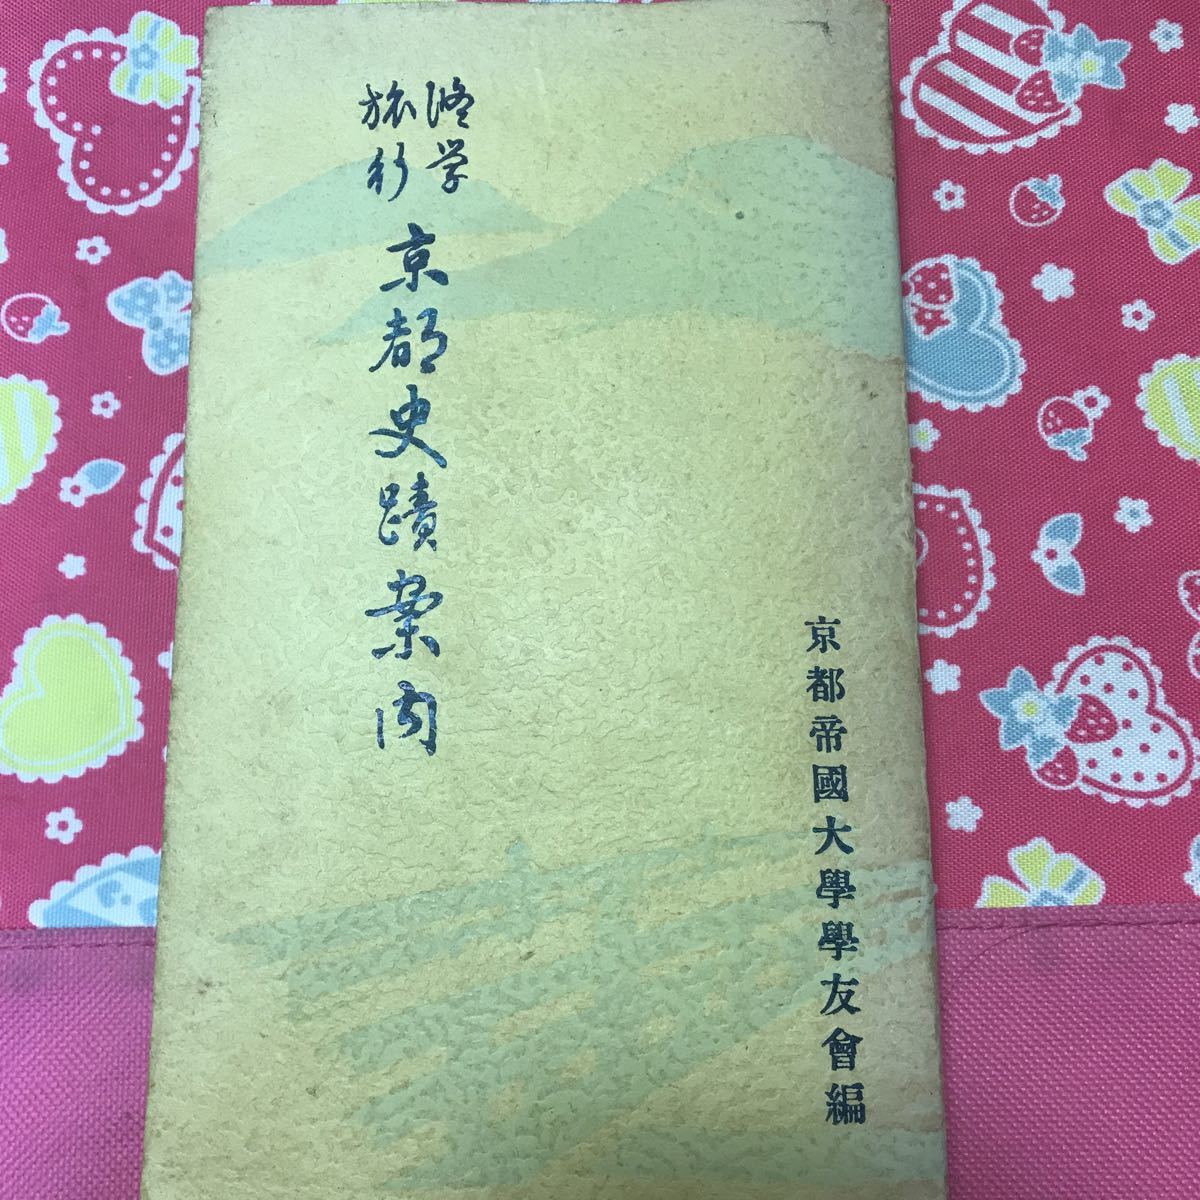 修学
旅行
京都史蹟案内
京都帝國大學學友會編